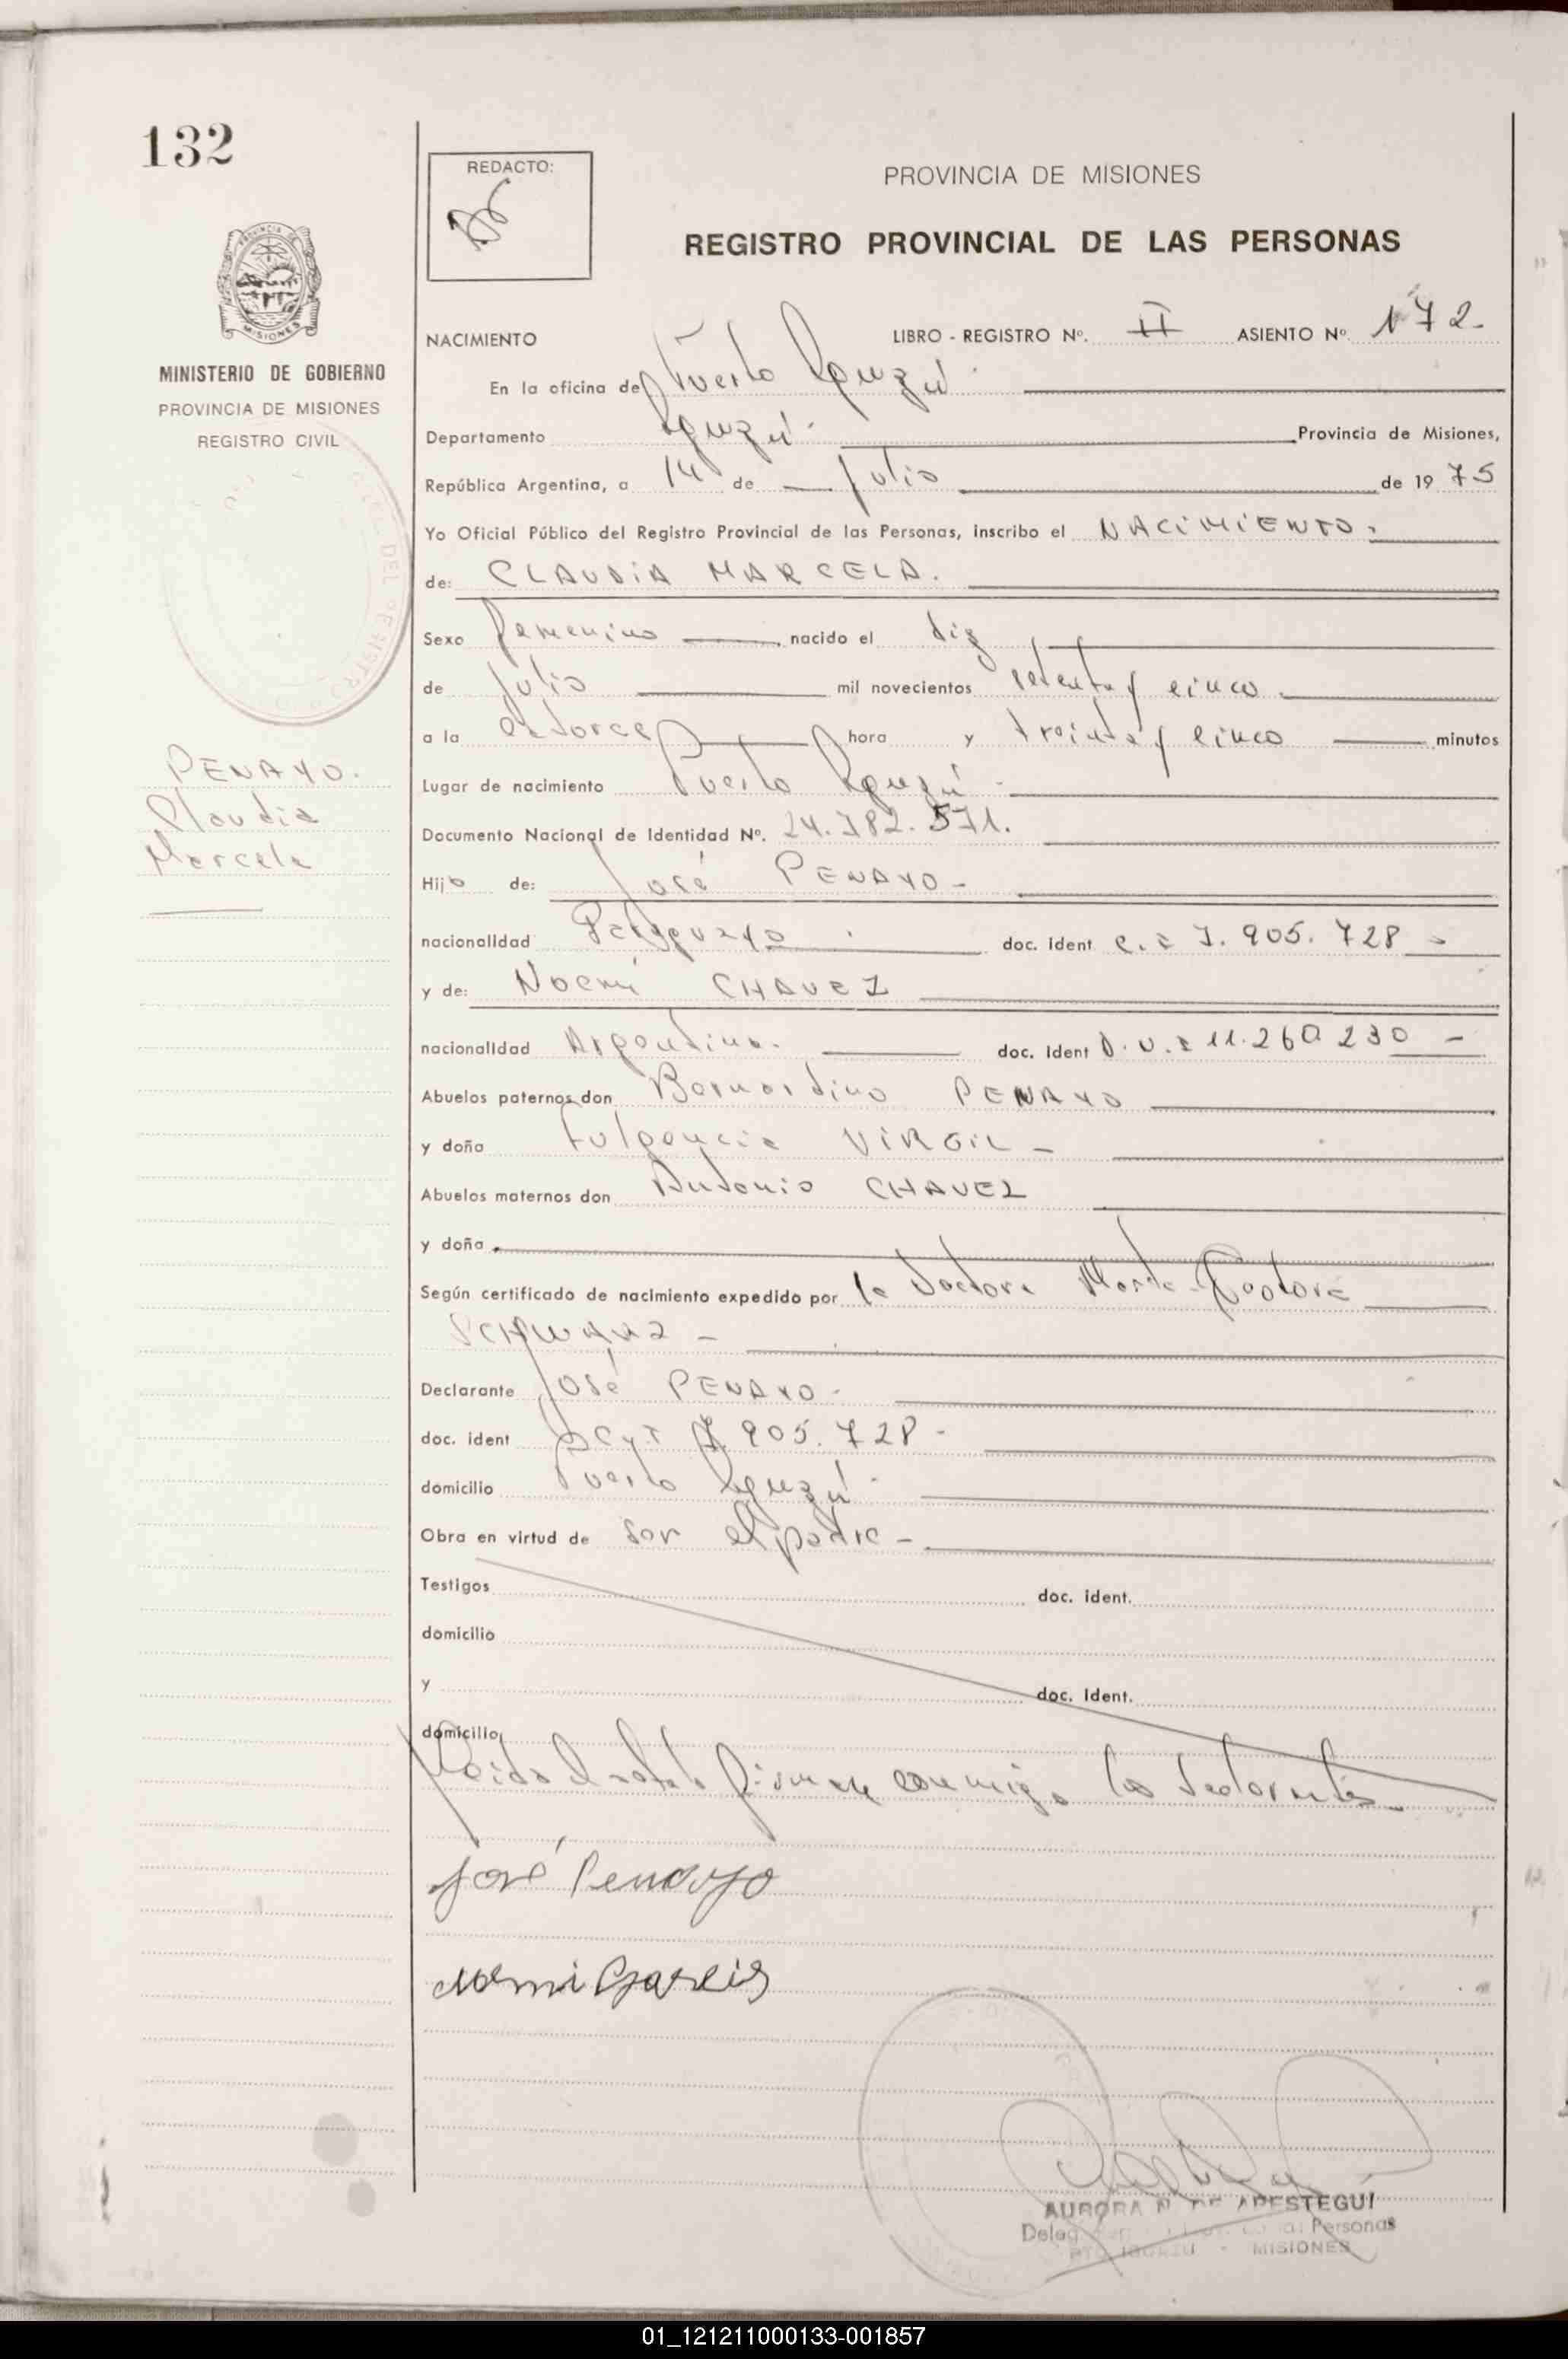 132
REDACTO:
PROVINCIA DE MISIONES
REGISTRO PROVINCIAL DE LAS PERSONAS
PROVINCIA DE MISIONES
MINISTERIO DE GOBIERNO
PROVINCIA DE MISIONES
REGISTRO CIVIL
DEL REGISTRO
PENAYO.
Claudia
Marcela
NACIMIENTO LIBRO - REGISTRO Nº. II ASIENTO Nº. 172
En la oficina de Puerto Iguazú
Departamento Iguazú Provincia de Misiones,
República Argentina, a 14 de Julio de 1975
Yo Oficial Público del Registro Provincial de las Personas, inscribo el NACIMIENTO
de: CLAUDIA MARCELA.
Sexo femenino nacido el diez
de Julio mil novecientos setenta y cinco
a la catorce hora y treinta y cinco minutos
Lugar de nacimiento Puerto Iguazú
Documento Nacional de Identidad Nº. 24.782.571.
Hijo de: José PENAYO -
nacionalidad Paraguayo doc. ident 905.728
y de: Noemí CHAVEZ
nacionalidad Argentina. doc. ident 11.260.230 -
Abuelos paternos don Bernardino PENAYO
y doña Fulgencia VIRGIL -
Abuelos maternos don Antonio CHAVEZ
y doña
Según certificado de nacimiento expedido por la Doctora
SCHWARZ -
Declarante José PENAYO -
doc. ident 905.728 -
domicilio Puerto Iguazú
Obra en virtud de ser el padre -
Testigos doc. ident.
domicilio
y doc. ident.
domicilio
Leida el acta la firman conmigo los
José Penayo
AURORA DE APESTEGUÍ
Personas
PTO IGUAZU - MISIONES
01_121211000133-001857